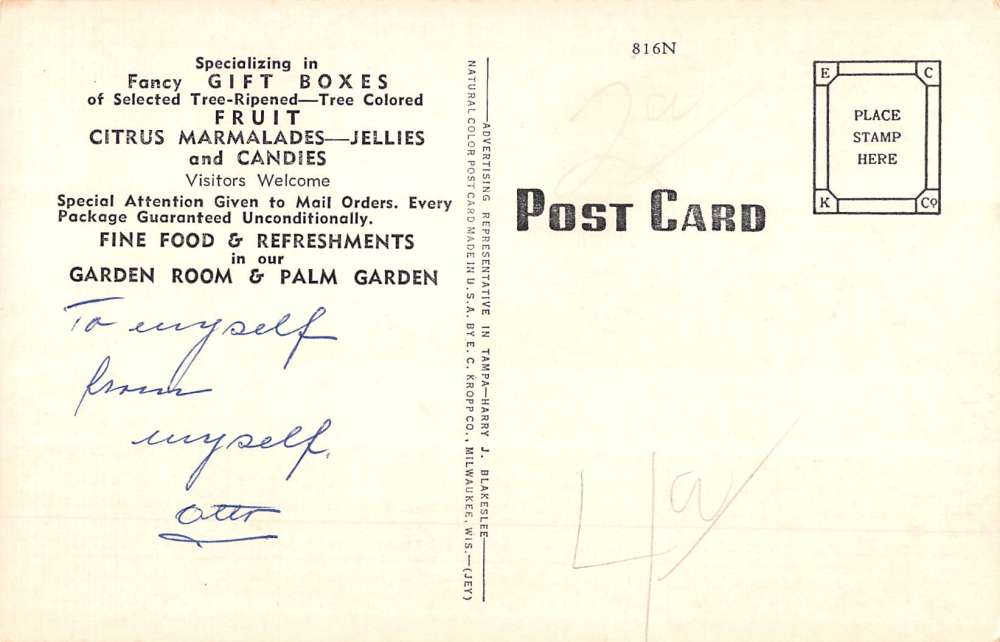 Specializing in
Fancy GIFT BOXES
of Selected Tree-Ripened—Tree Colored
FRUIT
CITRUS MARMALADES—JELLIES
and CANDIES
Visitors Welcome
Special Attention Given to Mail Orders. Every
Package Guaranteed Unconditionally.
FINE FOOD & REFRESHMENTS
in our
GARDEN ROOM & PALM GARDEN
To myself
from
myself.
Otto
—ADVERTISING REPRESENTATIVE IN TAMPA—HARRY J. BLAKESLEE—
NATURAL COLOR POST CARD MADE IN U.S.A. BY E. C. KROPP CO., MILWAUKEE, WIS.—(JEY)
816N
2a
POST CARD
E C
PLACE
STAMP
HERE
K Co
4a